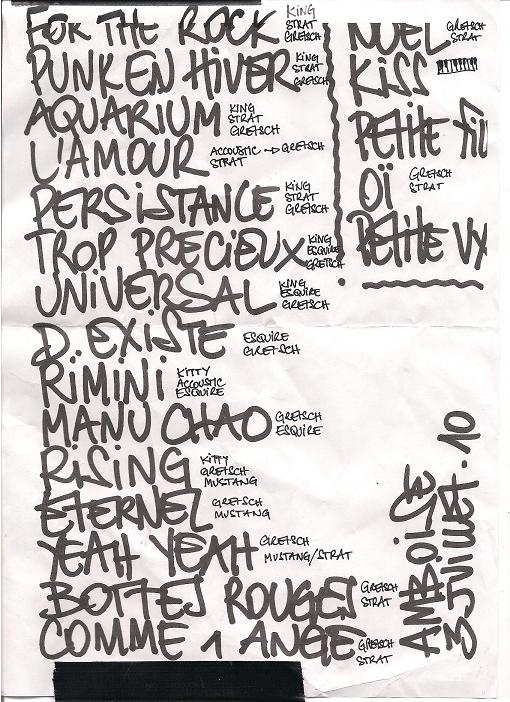 FOR THE ROCK KING
STRAT
GRETSCH
PUNK EN HiVER KING
STRAT
GRETSCH
AQUARIUM KING
STRAT
GRETSCH
L'AMOUR ACOUSTIC → GRETSCH
STRAT
PERSiSTANCE KING
STRAT
GRETSCH
TROP PRECiEUX KING
ESQUIRE
GRETSCH
UNiVERSAL KING
ESQUIRE
GRETSCH
D. EXiSTE ESQUIRE
GRETSCH
RiMiNi KITTY
ACOUSTIC
ESQUIRE
MANU CHAO GRETSCH
ESQUIRE
RiSiNG KITTY
GRETSCH
MUSTANG
ETERNEL GRETSCH
MUSTANG
YEAH YEAH GRETSCH
MUSTANG/STRAT
BOTTES ROUGES GRETSCH
STRAT
COMME 1 ANGE GRETSCH
STRAT
NOEL GRETSCH
STRAT
KiSS
PETITE
OÏ GRETSCH
STRAT
PETITE VX
AMBOiSE
3 JUILLET.10